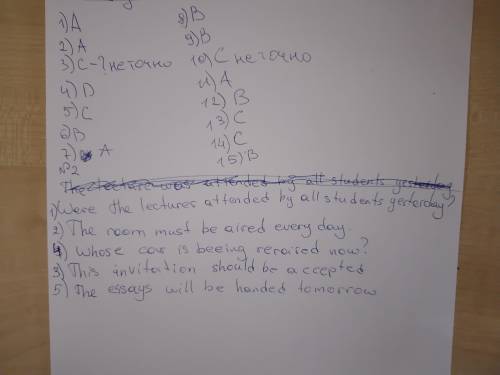 1) A
2) A
3) C - ? неточно
4) D
5) C
6) B
7) A
8) B
9) B
10) C неточно
11) A
12) B
13) C
14) C
15) B
№2
The lecture was attended by all students yesterday
1) Were the lectures attended by all students yesterday?
2) The room must be aired every day.
4) Whose car is beeing repaired now?
3) This invitation should be accepted
5) The essays will be handed tomorrow